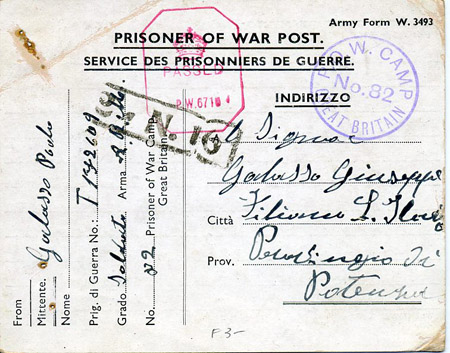 Army Form W. 3493
PRISONER OF WAR POST.
SERVICE DES PRISONNIERS DE GUERRE.
PASSED
P.W. 6710
P.O.W. CAMP
No. 82
GREAT BRITAIN
N. 16
INDIRIZZO
Al Signor
Galasso Giuseppe
Città Filiano
Prov. di
Potenza
From
Mittente. Galasso Paolo
Nome
Prig. di Guerra No.: T 142609
Grado Soldato Arma
No. 82 Prisoner of War Camp
Great Britain
F 3-